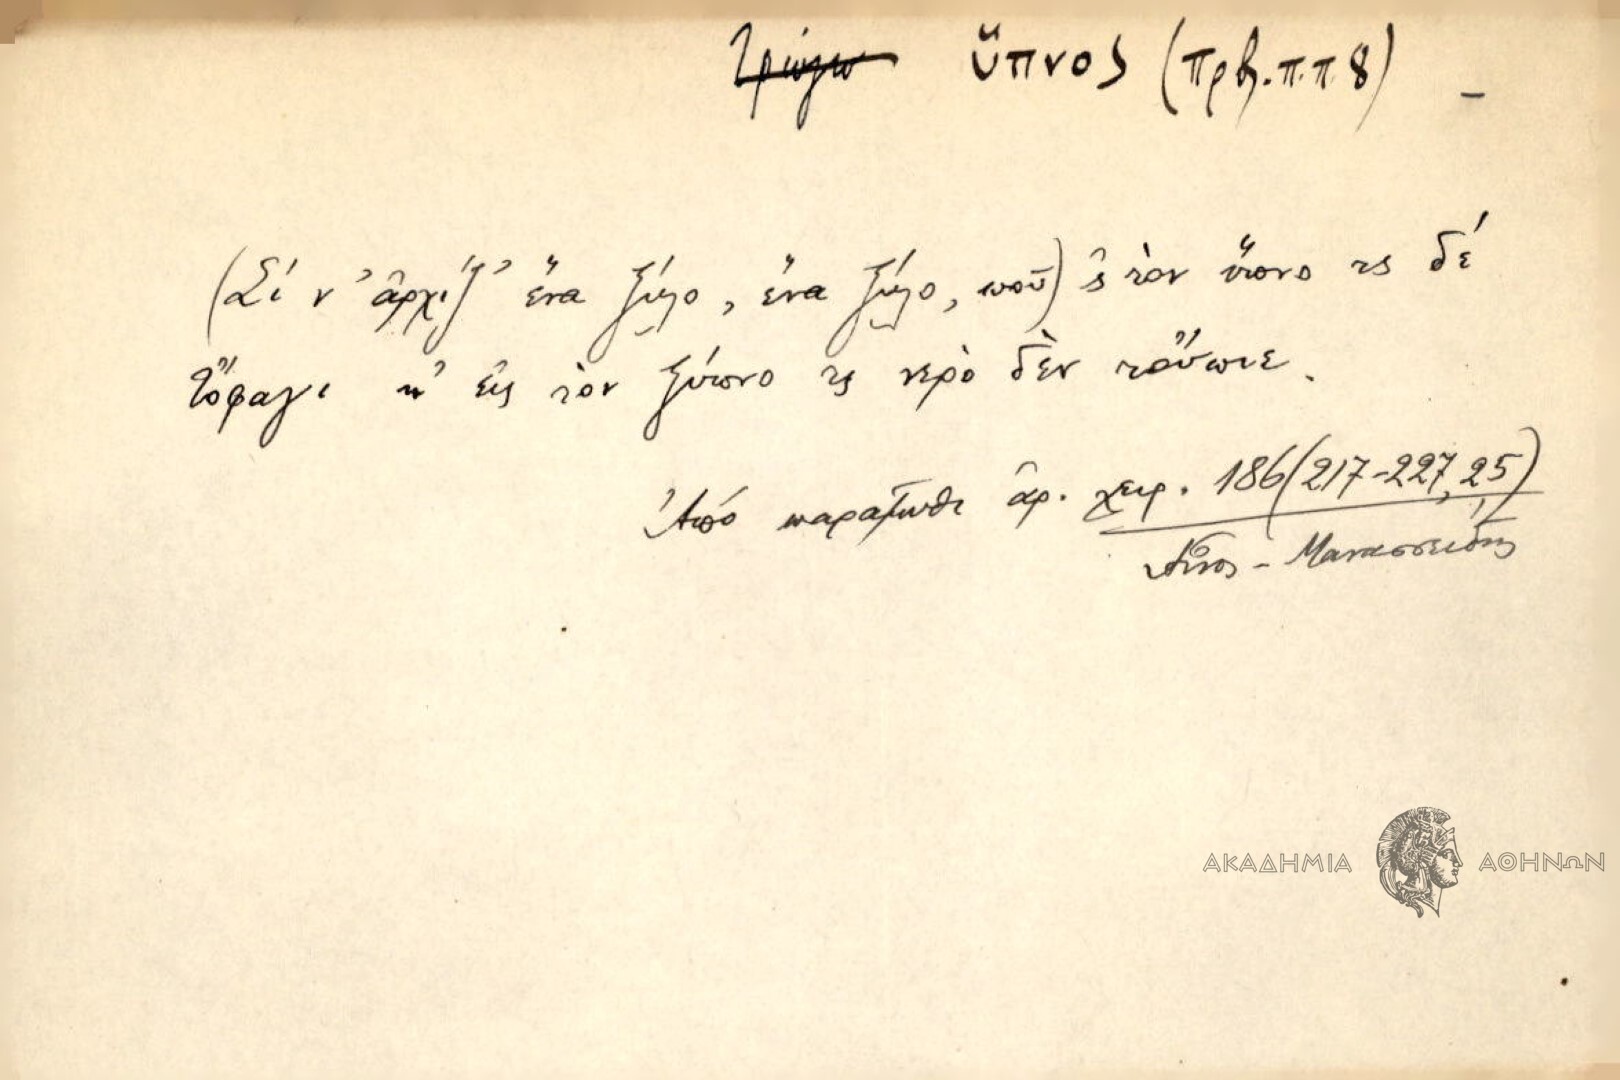 Τρώγω ὕπνος (πρβ. π.π 8) -
(Σί ν' ἀρχίζ' ἕνα ξύλο, ἕνα ξύλο, ποῦ) ς τὸν ὕπνο τς δέ
τὄφαγι κ' εἰς τὸν ξύπνο τς νερὸ δὲν τὄπιε.
Ἀπό παραμύθι ἀρ. χειρ. 186 (217-227, 25)
Αἶνος - Μανασσείδης
ΑΚΑΔΗΜΙΑ ΑΘΗΝΩΝ